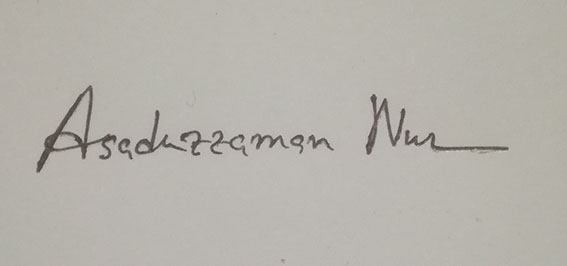 Asaduzzaman Nur